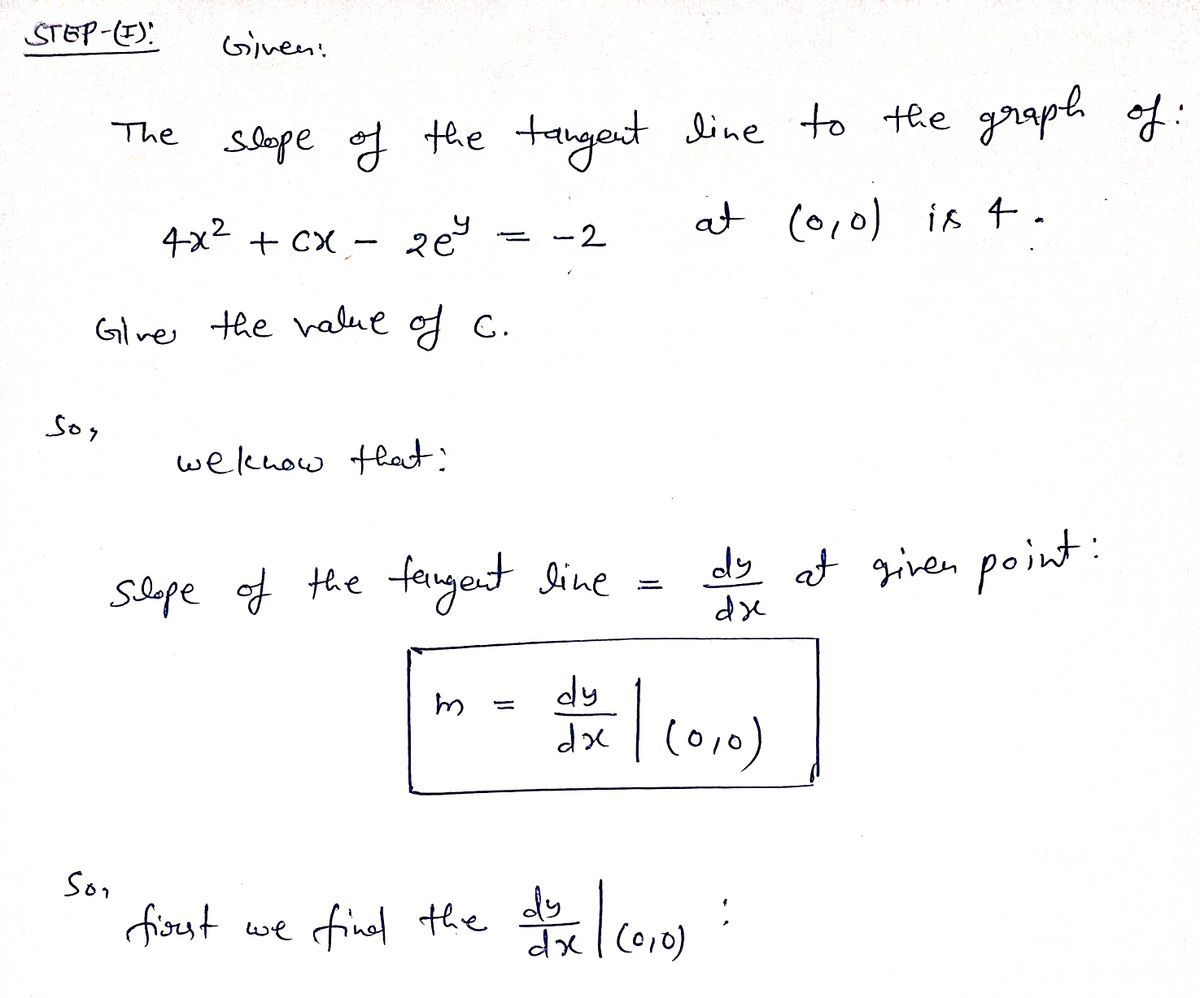 STEP-(I):
Given:
The slope of the tangent line to the graph of:
4x² + cx - 2e^y = -2 at (0,0) is 4.
Give the value of c.
So,
we know that:
slope of the tangent line = dy/dx at given point:
m = dy/dx | (0,0)
So,
first we find the dy/dx | (0,0) :